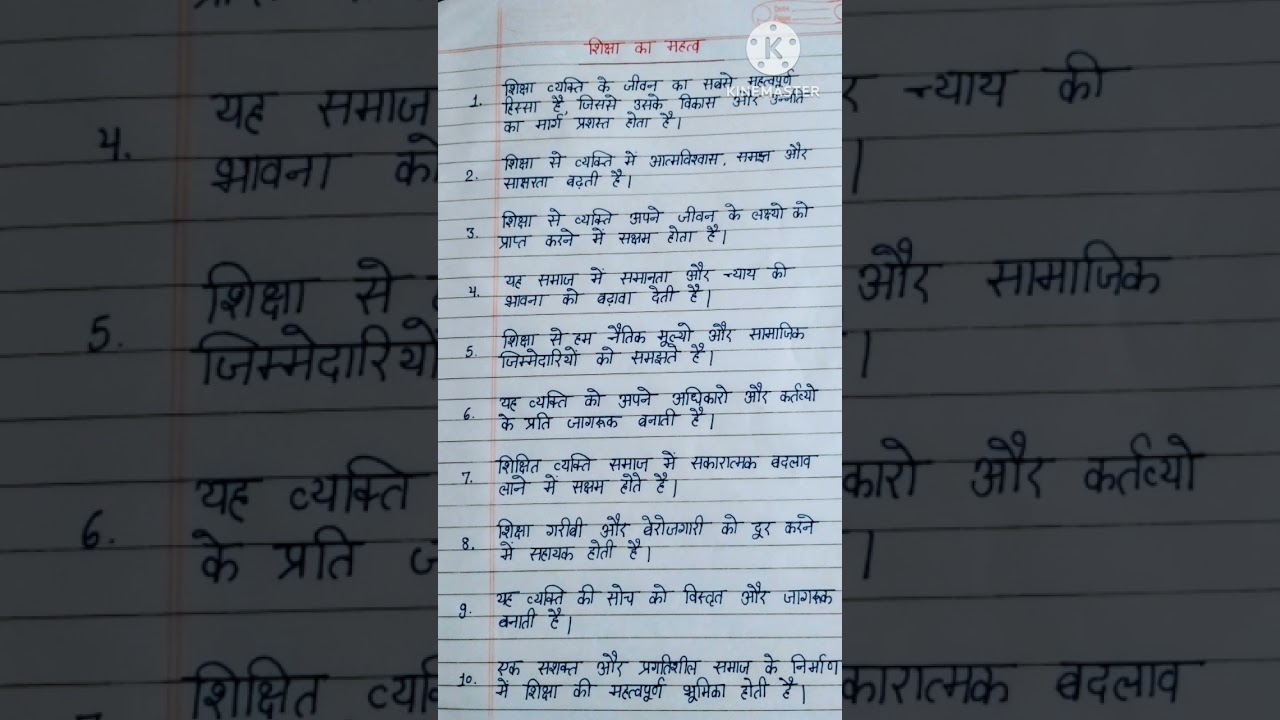 शिक्षा का महत्व
1. शिक्षा व्यक्ति के जीवन का सबसे महत्वपूर्ण
हिस्सा है, जिससे उसके विकास और उन्नति
का मार्ग प्रशस्त होता है।
2. शिक्षा से व्यक्ति में आत्मविश्वास, समझ और
साक्षरता बढ़ती है।
3. शिक्षा से व्यक्ति अपने जीवन के लक्ष्यो को
प्राप्त करने में सक्षम होता है।
4. यह समाज में समानता और न्याय की
भावना को बढ़ावा देती है।
5. शिक्षा से हम नैतिक मूल्यो और सामाजिक
जिम्मेदारियों को समझते है।
6. यह व्यक्ति को अपने अधिकारो और कर्तव्यो
के प्रति जागरूक बनाती है।
7. शिक्षित व्यक्ति समाज में सकारात्मक बदलाव
लाने में सक्षम होते है।
8. शिक्षा गरीबी और बेरोजगारी को दूर करने
में सहायक होती है।
9. यह व्यक्ति की सोच को विस्तृत और जागरूक
बनाती है।
10. एक सशक्त और प्रगतिशील समाज के निर्माण
में शिक्षा की महत्वपूर्ण भूमिका होती है।
KINEMASTER